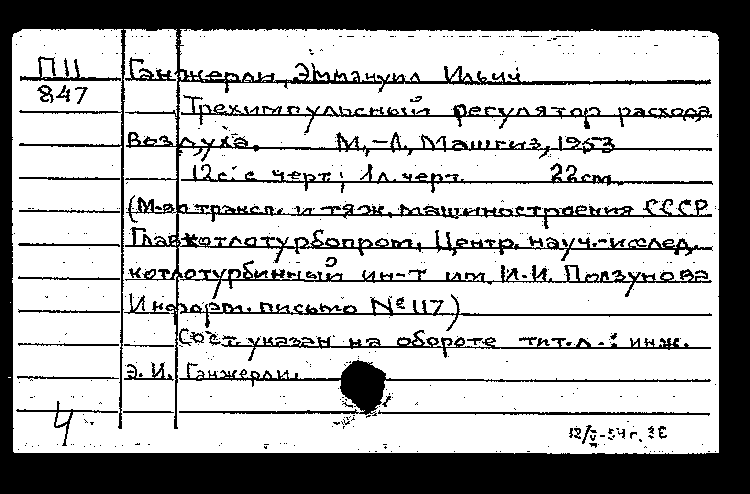 П11 Ганжерли, Эммануил Ильич
847 Трехимпульсный регулятор расхода
воздуха. М,-Л, Машгиз, 1953
12с. с черт; 1л. черт. 22cm.
(М-во трансп. и тяж. машиностроения СССР
Главкотлотурбопром. Центр. науч.-исслед.
котлотурбинный ин-т им. И.И. Ползунова
Информ. письмо № 117)
Сост. указан на обороте тит.л.: инж.
Э. И. Ганжерли.
4
12/V-54г.